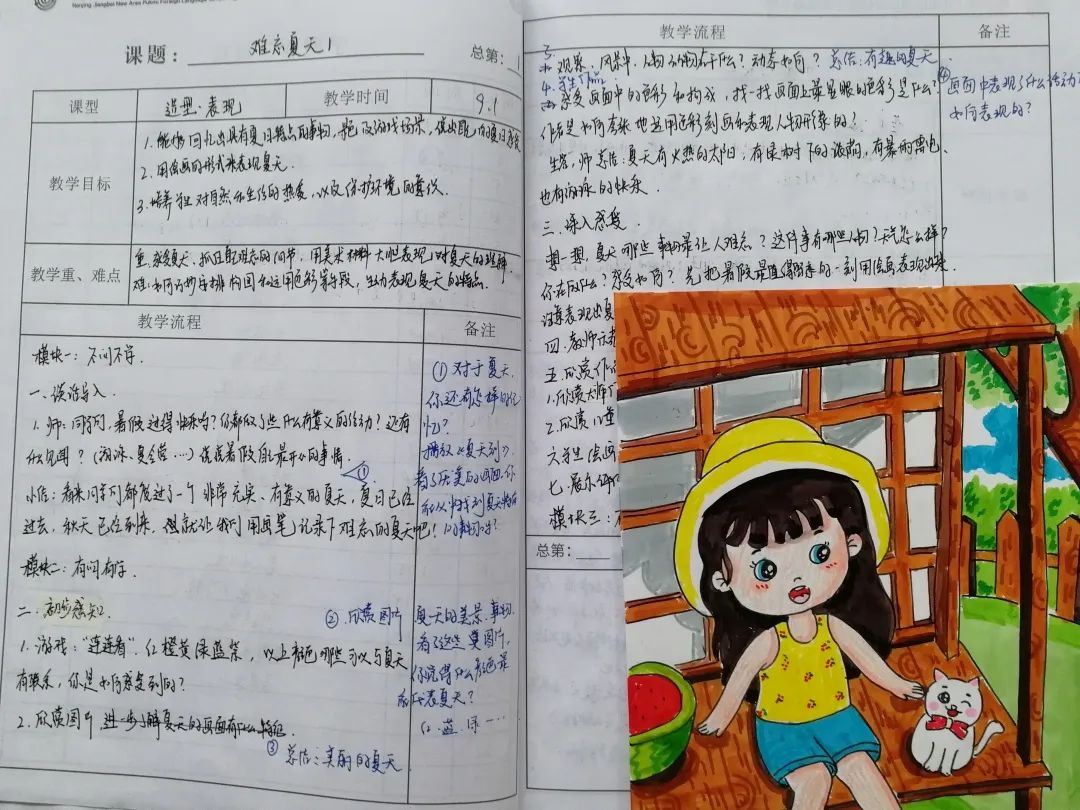 Nanjing Jiangbei New Area Pukou Foreign Language
课题：难忘夏天1
总第：1
课型 造型·表现 教学时间 9.1
教学目标
1.能够回忆出具有夏日特点的事物、
2.用绘画的形式来表现夏天.
3.培养学生对自然和生活的热爱，以及保护环境的意识.
教学重、难点
重:感受夏天，抓住最难忘的细节，用美术材料大胆表现对夏天的理解.
难:如何巧妙安排构图和运用色彩等手段，生动表现夏天的特点.
教学流程 备注
模块一：不问不学.
一、谈话导入
1.师:同学们，暑假过得快乐吗？你都做了些什么有意义的活动？还有
什么见闻？（游泳、夏令营…）说说暑假自己最开心的事情.
①
小结：看来同学们都度过了一个非常充实、有意义的夏天，夏日已经
过去，秋天已经到来，就让我们用画笔记录下难忘的夏天吧！
模块二：有问有学.
二.初步感知
1.游戏：“连连看”.红橙黄绿蓝紫，以上颜色哪些可以与夏天
有联系，你是如何感受到的？
2.欣赏图片 进一步了解夏天的画面有什么特征
③总结：美丽的夏天
①对于夏天，
你还有怎样的记
忆？
播放《夏天到》
看了优美的画面，你
可以找到夏天特有
的事物吗？
②.欣赏图片 夏天的美景、事物.
看了这些美图片，
你觉得什么颜色最
能代表夏天？
红.蓝.绿…
教学流程 备注
3.观察.风景中，人物、动物在干什么？动态如何？总结：有趣的夏天
4.学生作品.
感受画面中的色彩和构成，找一找画面上最显眼的色彩是什么？
④画面中表现了什么活动？
如何表现的？
作者是如何奇妙地运用色彩刻画和表现人物形象的！
生答，师总结：夏天有火热的太阳，有绿树下的浓荫，有暴雨雷电、
也有游泳的快乐.
三.深入感受.
想一想，夏天哪些事物最让人难忘？这件事有哪些人物？天气怎么样？
你在做什么？感受如何？先把暑假最值得骄傲的一刻用绘画表现出来.
注意表现出夏
四.教师示范
五.欣赏作
1.欣赏大师
2.欣赏儿童
六学生绘画
七.展示评
模块三：
总第：